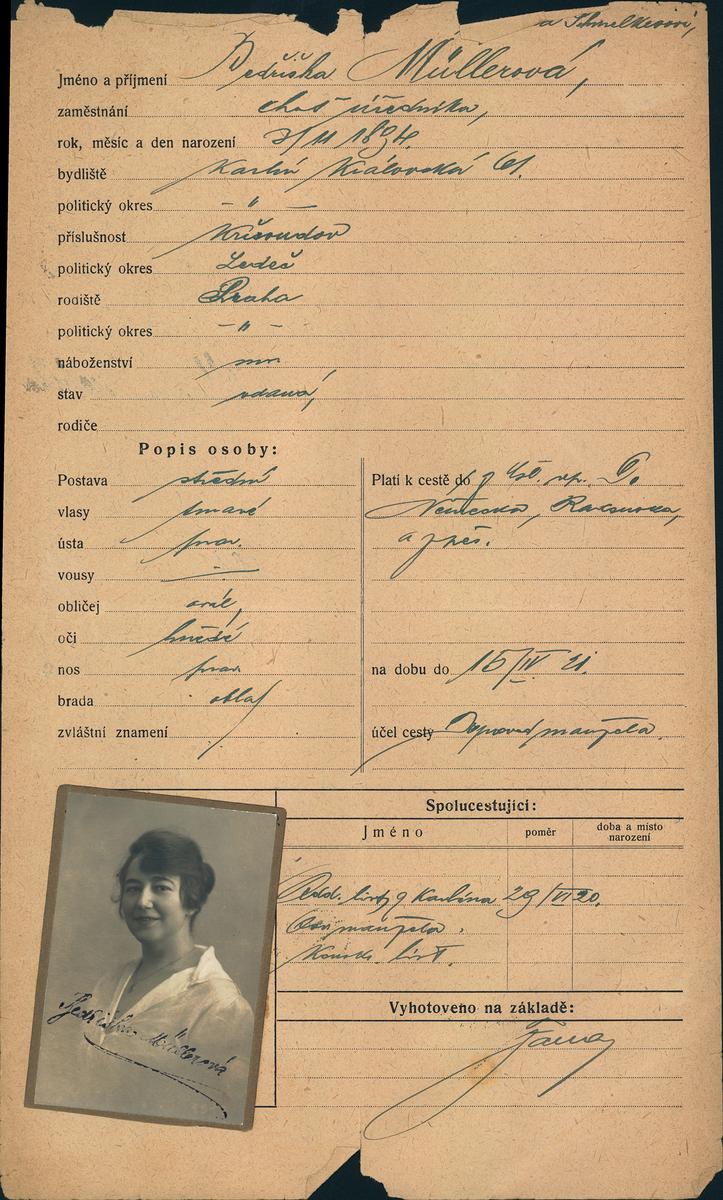 a Schmelkesová,
Jméno a příjmení Bedřiška Müllerová,
zaměstnání choť úředníka,
rok, měsíc a den narození 3/11 1894.
bydliště Karlín Královská 61.
politický okres – " –
příslušnost Křivsoudov
politický okres Ledeč
rodiště Praha
politický okres – " –
náboženství
stav vdaná,
rodiče
Popis osoby:
Postava střední
vlasy tmavé
ústa prav.
vousy —
obličej ovál,
oči hnědé
nos prav
brada oblá
zvláštní znamení
Platí k cestě do
Německa, Rakouska,
a zpět.
na dobu do 15/IV 21.
účel cesty Doprovod manžela.
Spolucestující:
Jméno poměr doba a místo narození
odd. list z Karlína 29/VI 20.
manžela.
list.
Vyhotoveno na základě:
Bedřiška Müllerová